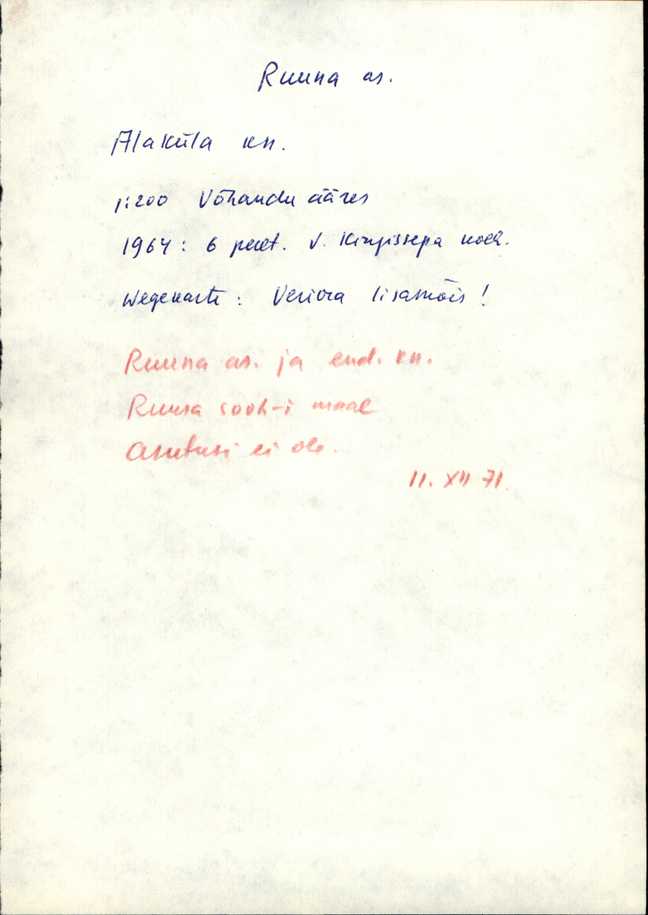 Ruuna as.
Alaküla kn.
1:200 Võhandu ääres
1964: 6 peret. V. Kingissepa kolh.
Wegekarte: Veriora lisamõis!
Ruuna as. ja end. kn.
Ruusa sovh-i maal
Asutusi ei ole.
11. XII 71.